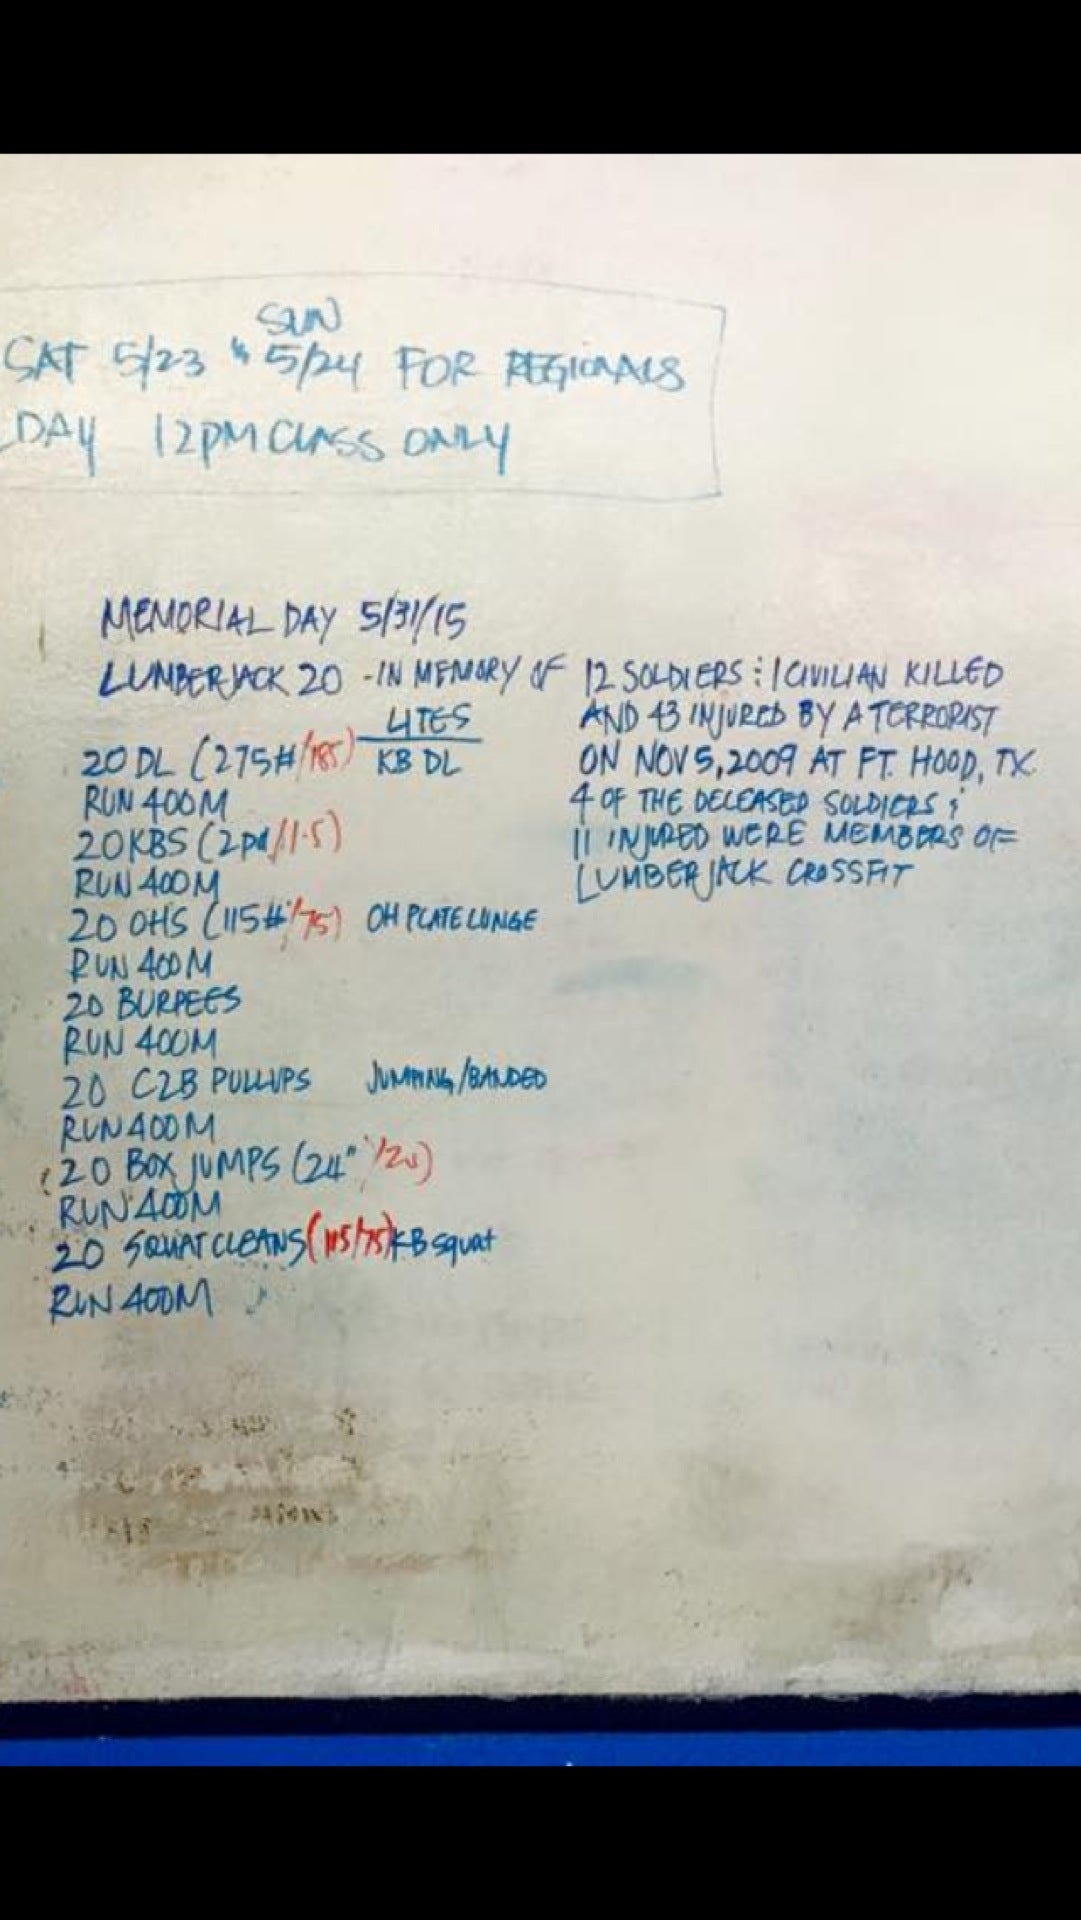 SUN
SAT 5/23 & 5/24 FOR REGIONALS
DAY 12PM CLASS ONLY
MEMORIAL DAY 5/31/15
LUMBERJACK 20 - IN MEMORY OF 12 SOLDIERS & 1 CIVILIAN KILLED
AND 43 INJURED BY A TERRORIST
ON NOV 5, 2009 AT FT. HOOD, TX.
4 OF THE DECEASED SOLDIERS &
11 INJURED WERE MEMBERS OF
LUMBERJACK CROSSFIT
LITES
20 DL (275#/185) KB DL
RUN 400M
20 KBS (2pd/1.5)
RUN 400M
20 OHS (115#/75) OH PLATE LUNGE
RUN 400M
20 BURPEES
RUN 400M
20 C2B PULLUPS JUMPING/BANDED
RUN 400M
20 BOX JUMPS (24"/20)
RUN 400M
20 SQUAT CLEANS (115/75) KB squat
RUN 400M